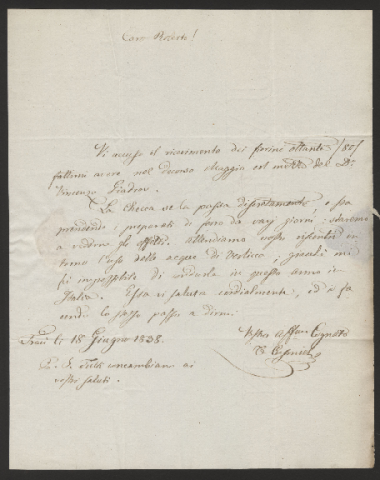 Caro Roberto!
Vi accuso il ricevimento dei fiorini ottanta /80/
fattimi avere nel decorso Maggio col mezzo del Dr.
Vincenzo
La Checca se la passa discretamente, e sta
prendendo i preparati di ferro da varj giorni; staremo
a vedere gli effetti. Attenderemo vostri riscontri in
torno l'uso delle acque di giacchè mi
fù impossibile di vederla in questo anno in
Italia. Essa vi saluta cordialmente, ed io fa
cendo lo stesso passo a dirmi
li 18 Giugno 1838.
Vostro affmo Cognato
P. S. Tutti ricambiano ai
vostri saluti.